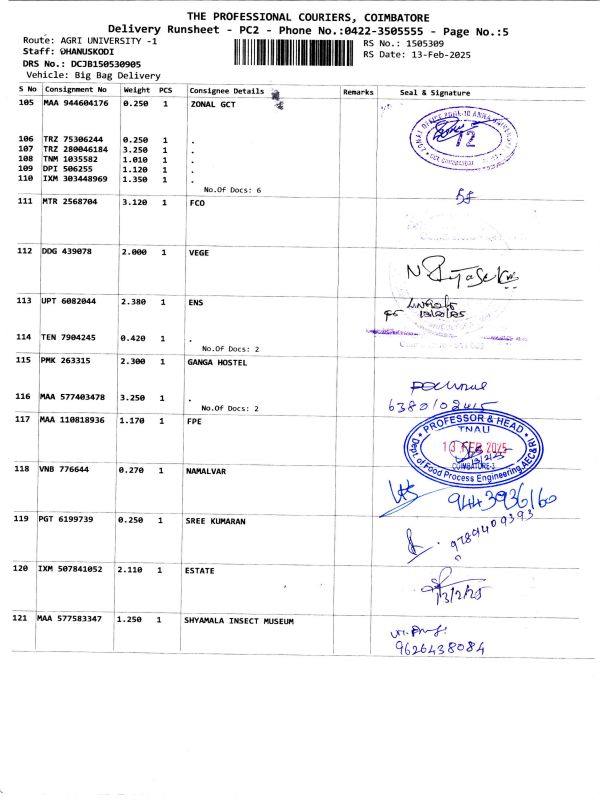 THE PROFESSIONAL COURIERS, COIMBATORE
Delivery Runsheet - PC2 - Phone No.:0422-3505555 - Page No.:5
Route: AGRI UNIVERSITY -1
RS No.: 1505309
Staff: DHANUSKODI
RS Date: 13-Feb-2025
DRS No.: DCJB150530905
Vehicle: Big Bag Delivery
S No Consignment No Weight PCS Consignee Details Remarks Seal & Signature
105 MAA 944604176 0.250 1 ZONAL GCT
106 TRZ 75306244 0.250 1 .
107 TRZ 280046184 3.250 1 .
108 TNM 1035582 1.010 1 .
109 DPI 506255 1.120 1 .
110 IXM 303448969 1.350 1 .
No.Of Docs: 6
111 MTR 2568704 3.120 1 FCO
112 DDG 439078 2.000 1 VEGE
113 UPT 6082044 2.380 1 ENS
114 TEN 7904245 0.420 1 .
No.Of Docs: 2
115 PMK 263315 2.300 1 GANGA HOSTEL
116 MAA 577403478 3.250 1 .
No.Of Docs: 2
6380102415
117 MAA 110818936 1.170 1 FPE
PROFESSOR & HEAD
TNAU
13 FEB 2025
COIMBATORE-3
Dept. of Food Process Engineering, AEC&RI
118 VNB 776644 0.270 1 NAMALVAR
9443936160
119 PGT 6199739 0.250 1 SREE KUMARAN
9789409393
120 IXM 507841052 2.110 1 ESTATE
13/2/25
121 MAA 577583347 1.250 1 SHYAMALA INSECT MUSEUM
9626438084